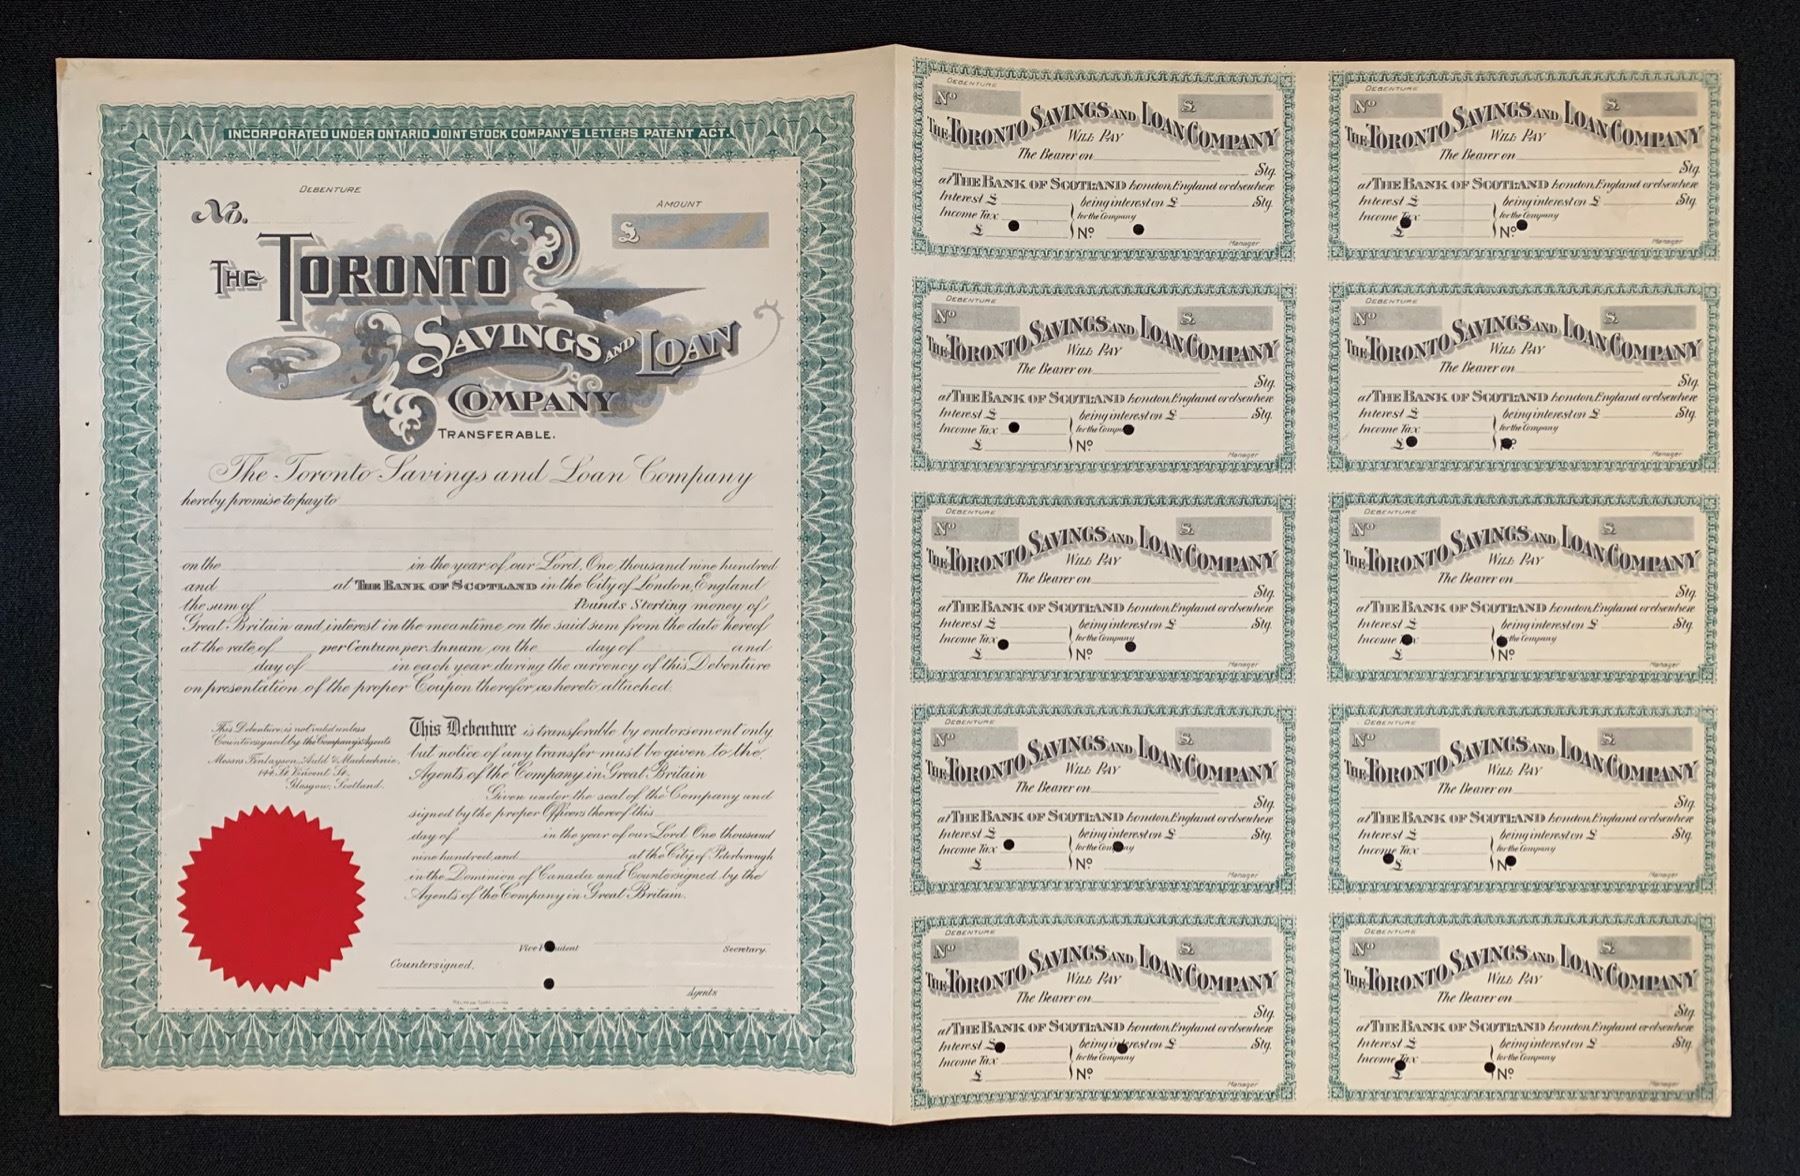 INCORPORATED UNDER ONTARIO JOINT STOCK COMPANY'S LETTERS PATENT ACT.
DEBENTURE
No.
AMOUNT
£
THE TORONTO
SAVINGS AND LOAN
COMPANY
TRANSFERABLE.
The Toronto Savings and Loan Company
hereby promise to pay to
on the in the year of our Lord, One thousand nine hundred
and at THE BANK OF SCOTLAND in the City of London, England
the sum of Pounds Sterling money of
Great Britain and interest in the meantime on the said sum from the date hereof
at the rate of per Centum per Annum, on the day of and
day of in each year during the currency of this Debenture
on presentation of the proper Coupon therefor as hereto attached.
This Debenture is not valid unless
Countersigned by the Company's Agents
Messrs Finlayson, Auld & Mackechnie,
144 St Vincent St.
Glasgow, Scotland.
This Debenture is transferable by endorsement only,
but notice of any transfer must be given to the
Agents of the Company in Great Britain
Given under the seal of the Company and
signed by the proper Officers thereof this
day of in the year of our Lord One thousand
nine hundred and at the City of Peterborough
in the Dominion of Canada and Countersigned by the
Agents of the Company in Great Britain.
Vice President Secretary.
Countersigned.
Agents
DEBENTURE
No £
THE TORONTO SAVINGS AND LOAN COMPANY
WILL PAY
The Bearer on
Stg.
at THE BANK OF SCOTLAND London, England or elsewhere
Interest £ being interest on £ Stg.
Income Tax for the Company
£ No
Manager
DEBENTURE
No £
THE TORONTO SAVINGS AND LOAN COMPANY
WILL PAY
The Bearer on
Stg.
at THE BANK OF SCOTLAND London, England or elsewhere
Interest £ being interest on £ Stg.
Income Tax for the Company
£ No
Manager
DEBENTURE
No £
THE TORONTO SAVINGS AND LOAN COMPANY
WILL PAY
The Bearer on
Stg.
at THE BANK OF SCOTLAND London, England or elsewhere
Interest £ being interest on £ Stg.
Income Tax for the Company
£ No
Manager
DEBENTURE
No £
THE TORONTO SAVINGS AND LOAN COMPANY
WILL PAY
The Bearer on
Stg.
at THE BANK OF SCOTLAND London, England or elsewhere
Interest £ being interest on £ Stg.
Income Tax for the Company
£ No
Manager
DEBENTURE
No £
THE TORONTO SAVINGS AND LOAN COMPANY
WILL PAY
The Bearer on
Stg.
at THE BANK OF SCOTLAND London, England or elsewhere
Interest £ being interest on £ Stg.
Income Tax for the Company
£ No
Manager
DEBENTURE
No £
THE TORONTO SAVINGS AND LOAN COMPANY
WILL PAY
The Bearer on
Stg.
at THE BANK OF SCOTLAND London, England or elsewhere
Interest £ being interest on £ Stg.
Income Tax for the Company
£ No
Manager
DEBENTURE
No £
THE TORONTO SAVINGS AND LOAN COMPANY
WILL PAY
The Bearer on
Stg.
at THE BANK OF SCOTLAND London, England or elsewhere
Interest £ being interest on £ Stg.
Income Tax for the Company
£ No
Manager
DEBENTURE
No £
THE TORONTO SAVINGS AND LOAN COMPANY
WILL PAY
The Bearer on
Stg.
at THE BANK OF SCOTLAND London, England or elsewhere
Interest £ being interest on £ Stg.
Income Tax for the Company
£ No
Manager
DEBENTURE
No £
THE TORONTO SAVINGS AND LOAN COMPANY
WILL PAY
The Bearer on
Stg.
at THE BANK OF SCOTLAND London, England or elsewhere
Interest £ being interest on £ Stg.
Income Tax for the Company
£ No
Manager
DEBENTURE
No £
THE TORONTO SAVINGS AND LOAN COMPANY
WILL PAY
The Bearer on
Stg.
at THE BANK OF SCOTLAND London, England or elsewhere
Interest £ being interest on £ Stg.
Income Tax for the Company
£ No
Manager